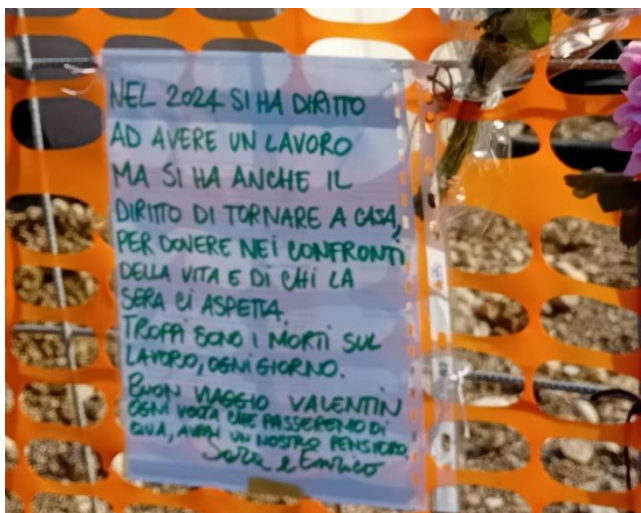 NEL 2024 SI HA DIRITTO
AD AVERE UN LAVORO
MA SI HA ANCHE IL
DIRITTO DI TORNARE A CASA,
PER DOVERE NEI CONFRONTI
DELLA VITA E DI CHI LA
SERA CI ASPETTA.
TROPPI SONO I MORTI SUL
LAVORO, OGNI GIORNO.
BUON VIAGGIO VALENTIN
OGNI VOLTA CHE PASSEREMO DI
QUA, AVRAI UN NOSTRO PENSIERO.
Sara e Enrico